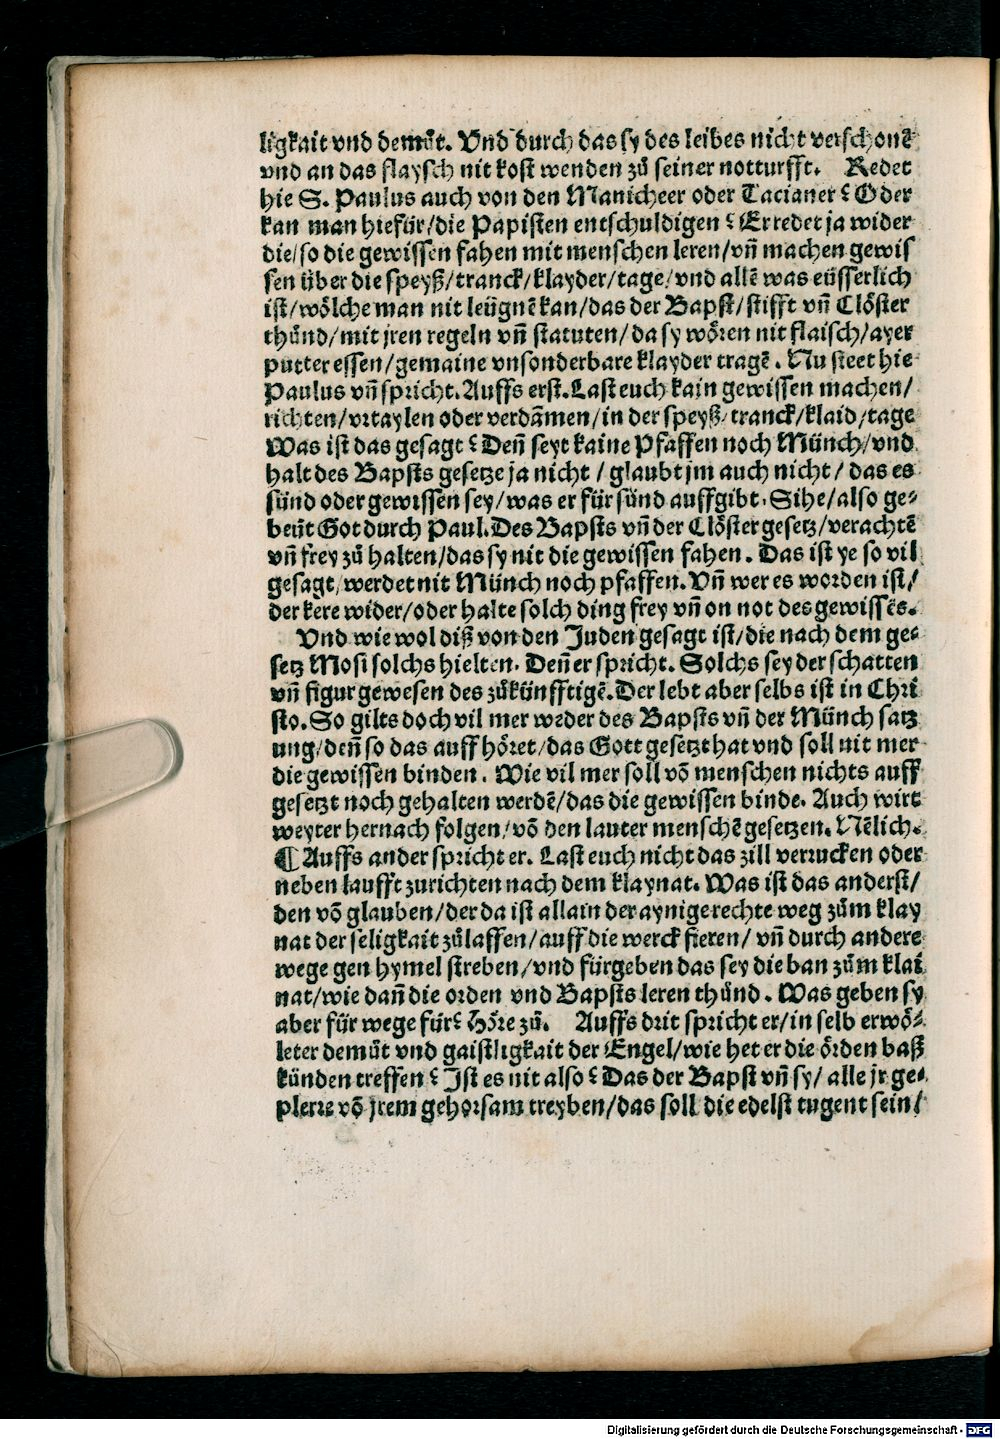 ligkait vnd demůt. Vnd durch das sy des leibes nicht verschonē
vnd an das flaysch nit kost wenden zů seiner notturfft. Redet
hie S. Paulus auch von den Manicheer oder Tacianer? Oder
kan man hiefür/die Papisten entschuldigen? Er redet ja wider
die/so die gewissen fahen mit menschen leren/vñ machen gewis
sen über die speyß/tranck/klayder/tage/vnd allē was eüsserlich
ist/wölche man nit leügnē kan/das der Bapst/stifft vñ Clöster
thůnd/mit jren regeln vñ statuten/da sy wören nit flaisch/ayer
putter essen/gemaine vnsonderbare klayder tragē. Nu steet hie
Paulus vñ spricht. Auffs erst. Last euch kain gewissen machen/
richten/vrtaylen oder verdāmen/in der speyß/tranck/klaid/tage
Was ist das gesagt? Deñ seyt kaine Pfaffen noch Münch/vnd
halt des Bapsts gesetze ja nicht/glaubt jm auch nicht/das es
sünd oder gewissen sey/was er für sünd auffgibt. Sihe/also ge⸗
beüt Got durch Paul. Des Bapsts vñ der Clöster gesetz/verachtē
vñ frey zů halten/das sy nit die gewissen fahen. Das ist ye so vil
gesagt/werdet nit Münch noch pfaffen. Vñ wer es worden ist/
der kere wider/oder halte solch ding frey vñ on not des gewissēs.
Vnd wie wol diß von den Juden gesagt ist/die nach dem ge⸗
setz Mosi solchs hielten. Deñ er spricht. Solchs sey der schatten
vñ figur gewesen des zůkünfftigē. Der lebt aber selbs ist in Chri
sto. So gilts doch vil mer weder des Bapsts vñ der Münch satz
ung/deñ so das auff höret/das Gott gesetzt hat vnd soll nit mer
die gewissen binden. Wie vil mer soll vō menschen nichts auff
gesetzt noch gehalten werdē/das die gewissen binde. Auch wirt
weyter hernach folgen/vō den lauter menschē gesetzen. Nēlich.
¶ Auffs ander spricht er. Last euch nicht das zill verrucken oder
neben laufft zurichten nach dem klaynat. Was ist das anderst/
den vō glauben/der da ist allain der aynige rechte weg zům klay
nat der seligkait zůlassen/auff die werck fieren/vñ durch andere
wege gen hymel streben/vnd fürgeben das sey die ban zům klai
nat/wie dañ die orden vnd Bapsts leren thůnd. Was geben sy
aber für wege für? Höre zů. Auffs drit spricht er/in selb erwö⸗
leter demůt vnd gaistligkait der Engel/wie het er die örden baß
künden treffen? Ist es nit also? Das der Bapst vñ sy/alle jr ge⸗
plerre vō jrem gehorsam treyben/das soll die edelst tugent sein/
Digitalisierung gefördert durch die Deutsche Forschungsgemeinschaft - DFG